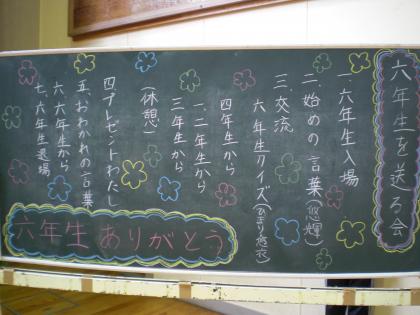 六年生を送る会
一、六年生入場
二、始めの言葉(悠輝)
三、交流
六年生クイズ(ひまり、悠衣)
四年生から
一、二年生から
三年生から
(休憩)
四、プレゼントわたし
五、おわかれの言葉
六、六年生から
七、六年生退場
六年生ありがとう